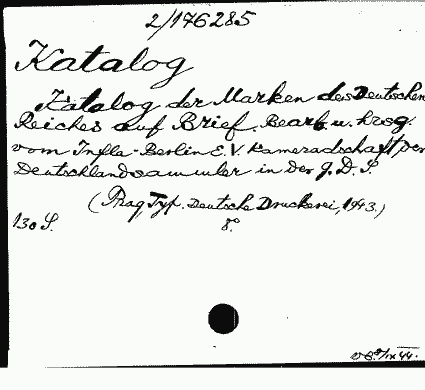 2/176285
Katalog
Katalog der Marken des Deutschen
Reiches auf Brief. Bearb. u. hrsg.
vom Infla-Berlin E.V. Kameradschaft der
Deutschlandsammler in der G.D.S.
(Prag, Typ. Deutsche Druckerei, 1943.)
130 S. 8°